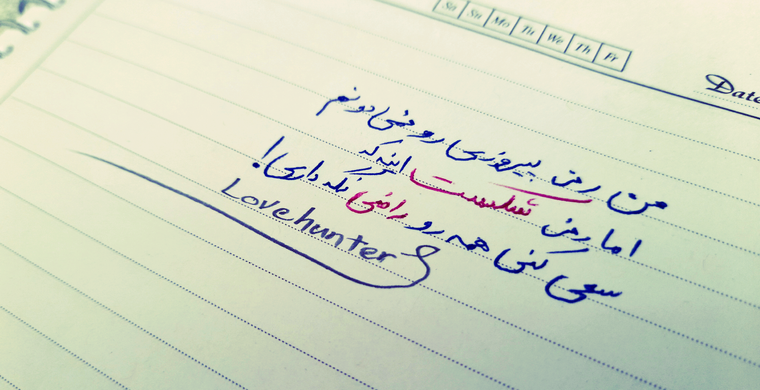 Sa Su Mo Tu We Th Fr
Date
من رمز پیروزی رو نمی‌دونم
اما رمز شکست اینه که
سعی کنی همه رو راضی نگه داری!
Lovehunter